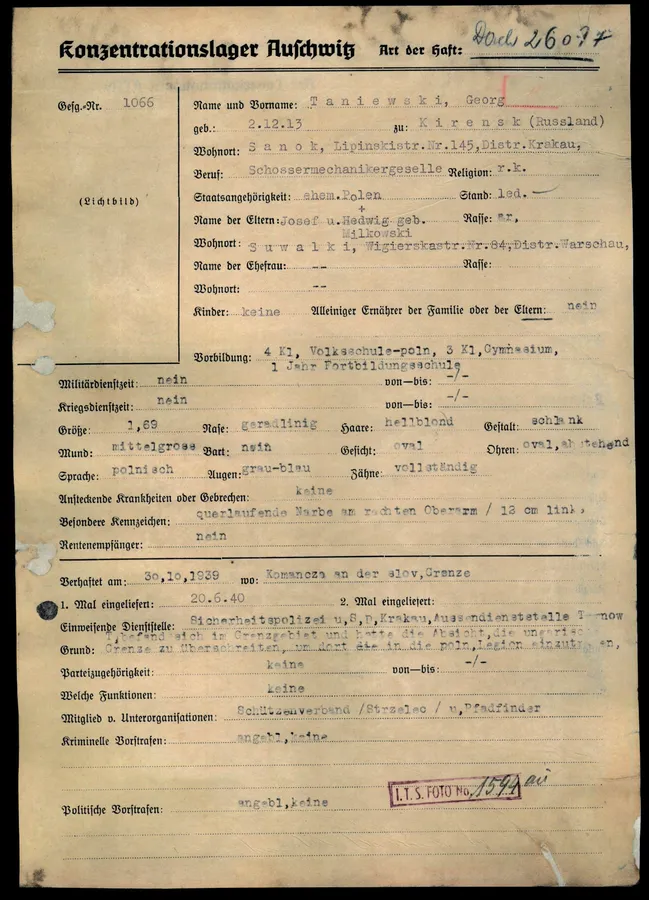 Konzentrationslager Auschwitz Art der Haft: Dach 26037
Gefg.-Nr. 1066
(Lichtbild)
Name und Vorname: Taniewski, Georg
geb.: 2.12.13 zu: Kirensk (Russland)
Wohnort: Sanok, Lipinskistr.Nr.145,Distr.Krakau,
Beruf: Schossermechanikergeselle Religion: r.k.
Staatsangehörigkeit: ehem.Polen Stand: led.
Name der Eltern: Josef u.Hedwig geb. Rasse: ar,
Milkowski
Wohnort: Suwalki, Wigierskastr.Nr.84,Distr.Warschau,
Name der Ehefrau: -- Rasse:
Wohnort: --
Kinder: keine Alleiniger Ernährer der Familie oder der Eltern: nein
Vorbildung: 4 Kl, Volksschule-poln, 3 Kl,Gymnasium,
1 Jahr Fortbildungsschule
Militärdienstzeit: nein von—bis: -/-
Kriegsdienstzeit: nein von—bis: -/-
Größe: 1,69 Nase: geradlinig Haare: hellblond Gestalt: schlank
Mund: mittelgross Bart: nein Gesicht: oval Ohren: oval,abstehend
Sprache: polnisch Augen: grau-blau Zähne: vollständig
Ansteckende Krankheiten oder Gebrechen: keine
Besondere Kennzeichen: querlaufende Narbe am rechten Oberarm / 12 cm link,
Rentenempfänger: nein
Verhaftet am: 30,10,1939 wo: Komancza an der slov,Grenze
1. Mal eingeliefert: 20.6.40 2. Mal eingeliefert:
Einweisende Dienststelle: Sicherheitspolizei u,S,D,Krakau,Aussendienststelle Tarnow
Grund: T,befand sich im Grenzgebiet und hatte die Absicht,die ungarische
Grenze zu überschreiten, um dort in die poln,Legion einzutreten,
Parteizugehörigkeit: keine von—bis: -/-
Welche Funktionen: keine
Mitglied v. Unterorganisationen: Schützenverband /Strzelec / u,Pfadfinder
Kriminelle Vorstrafen: angebl,keine
I.T.S. FOTO No. 1594
Politische Vorstrafen: angebl,keine